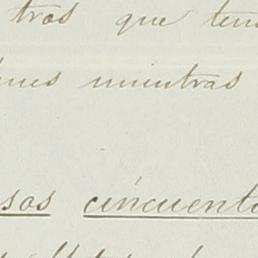 tros que ten
nes mientras
sos cincuenta